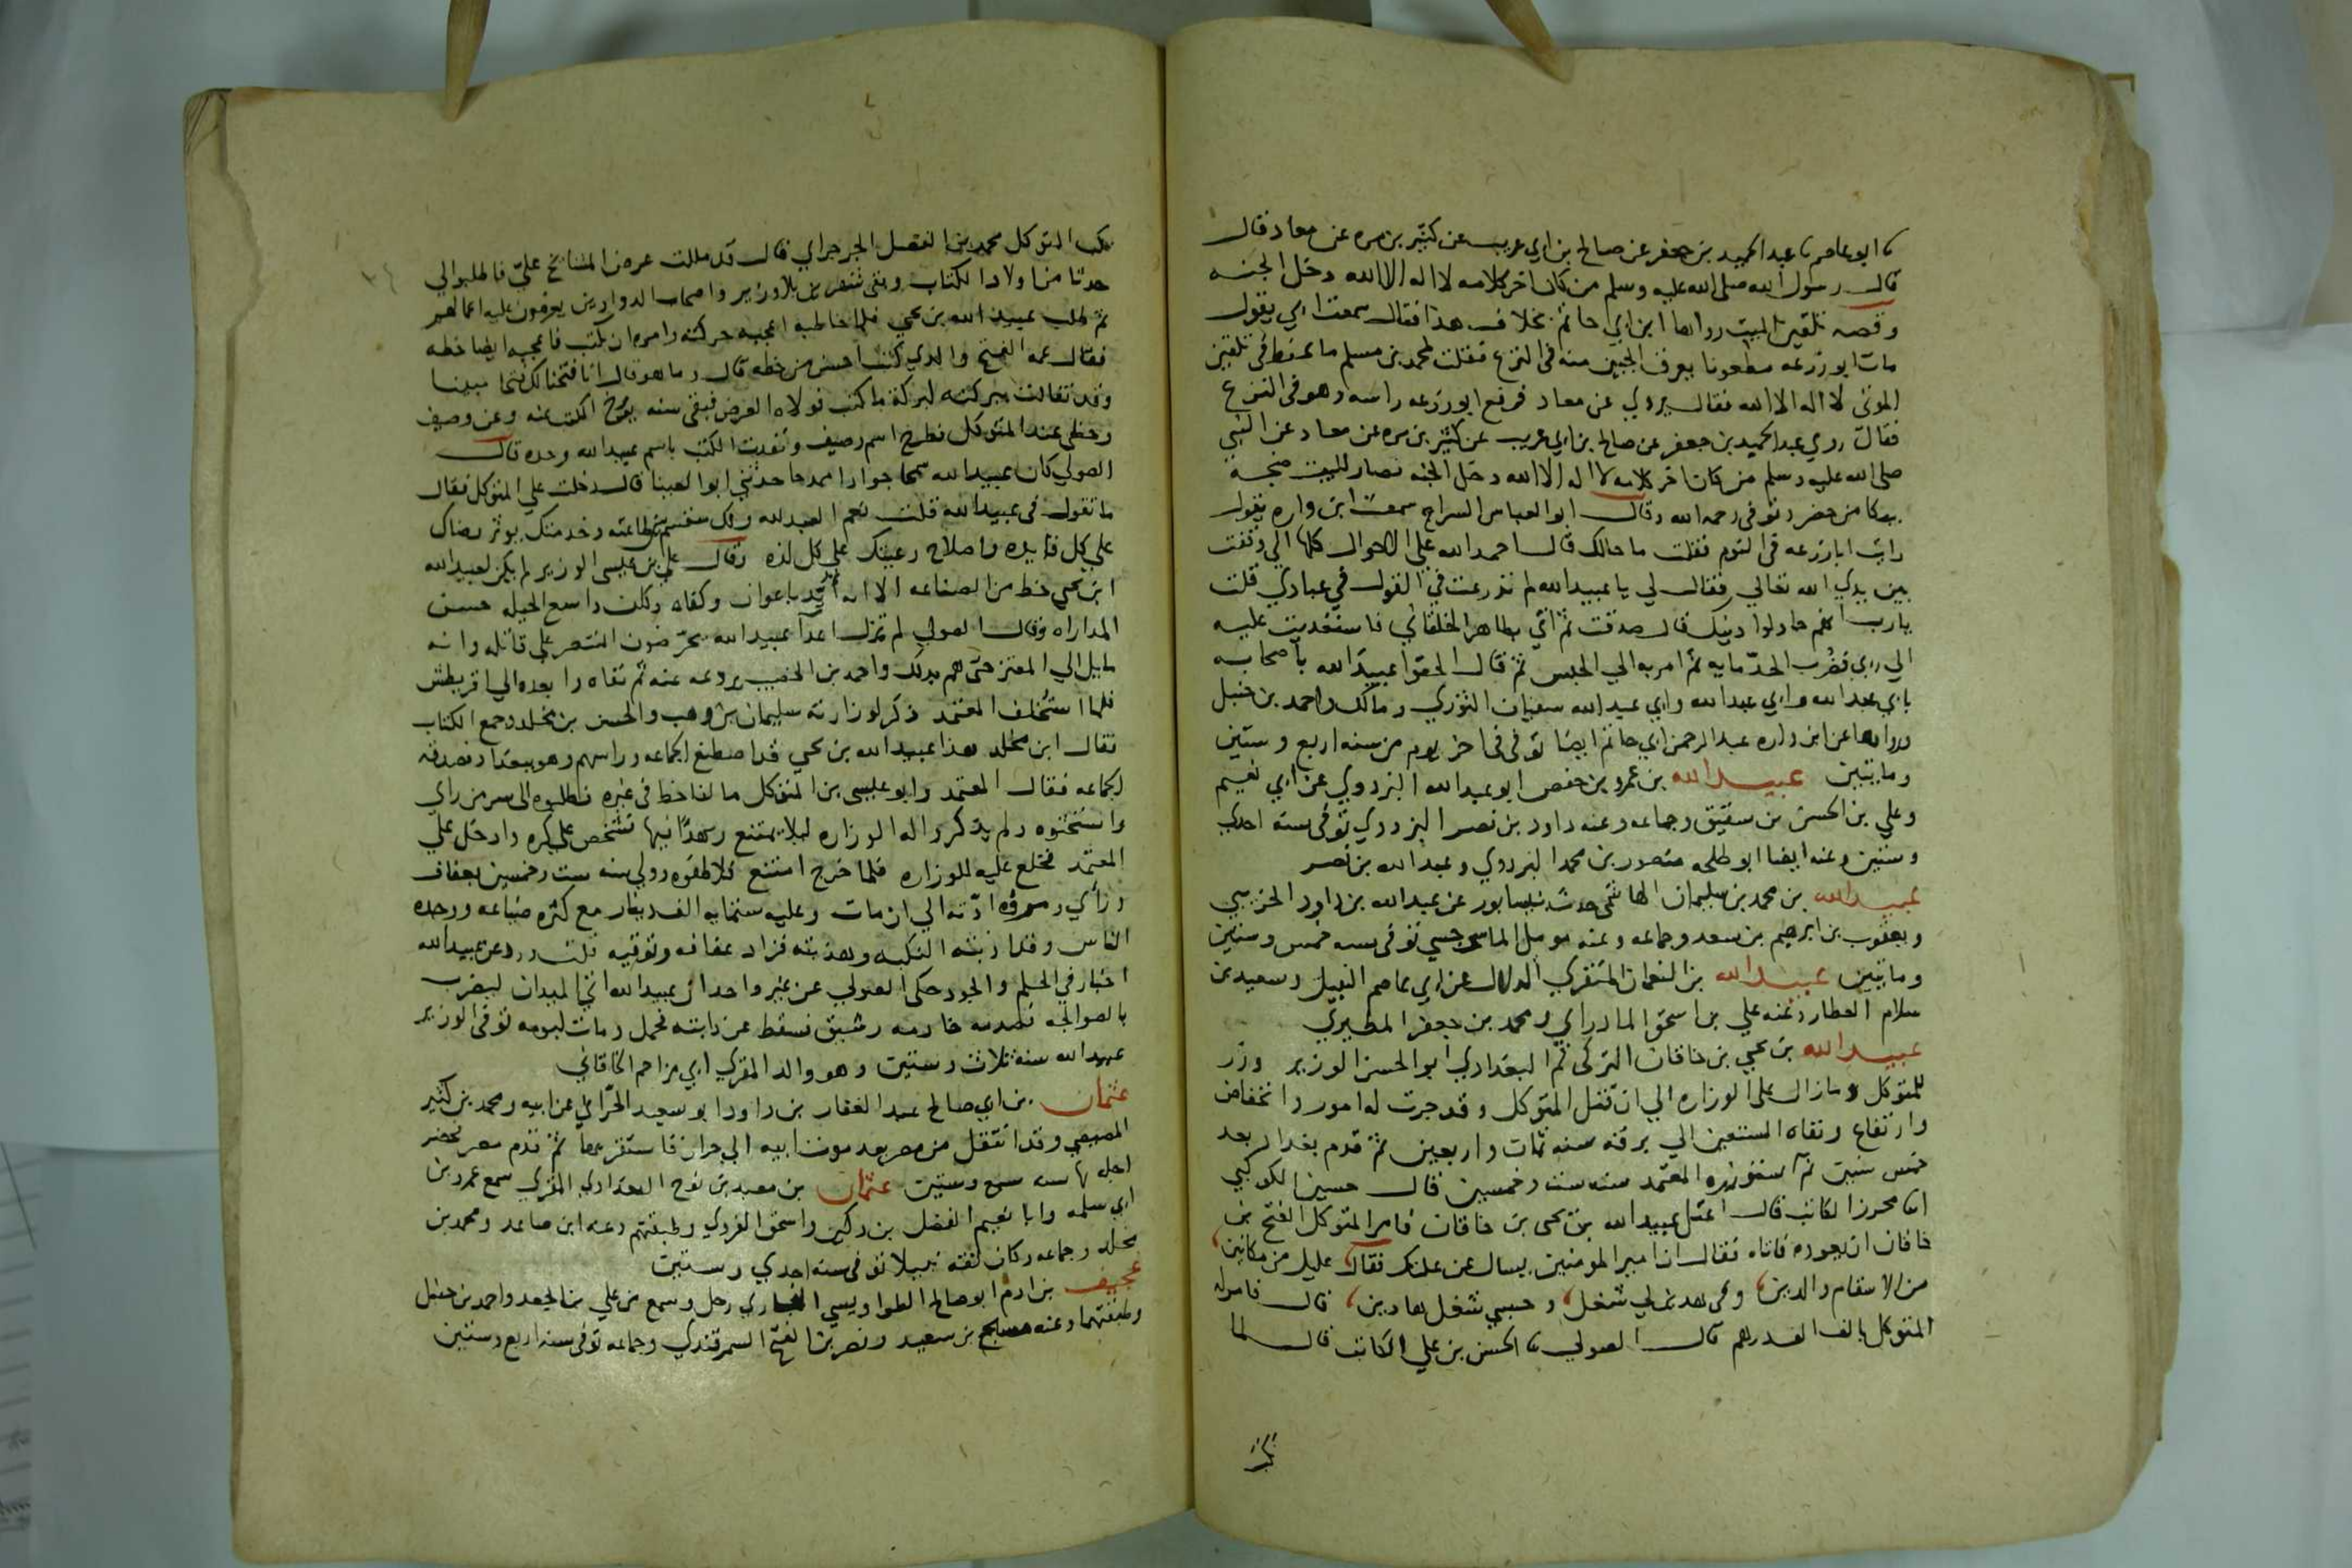 نا ابو عاصم نا عبد الحميد بن جعفر عن صالح بن ابي عريب عن كثير بن مره عن معاذ قال
قال رسول الله صلى الله عليه وسلم من كان اخر كلامه لا اله الا الله دخل الجنه
وقصه تلقين الميت رواها ابن ابي حاتم بخلاف هذا فقال سمعت ابي يقول
مات ابو زرعه مطعونا يعرق الجبين منه في النزع فقلت لمحمد بن مسلم ما تحفظ في تلقين
الموتى لا اله الا الله فقال يروي عن معاذ فرفع ابو زرعه راسه وهو في النزع
فقال روي عبد الحميد بن جعفر عن صالح بن ابي عريب عن كثير بن مره عن معاذ عن النبي
صلى الله عليه وسلم من كان اخر كلامه لا اله الا الله دخل الجنه فصار للبيت ضجه
ببكا من حضر وتوفي رحمه الله وقال ابو العباس السراج سمعت ابن واره يقول
رايت ابا زرعه في النوم فقلت ما حالك قال احمد الله على الاحوال كلها اني وقفت
بين يدي الله تعالى فقال لي يا عبيد الله لم تذرعت في القول في عبادي قلت
يا رب انهم حاولوا دينك قال صدقت ثم اتي بطاهر الخلقاني فاستعديت عليه
الى ربي فضرب الحد مايه ثم امر به الى الحبس ثم قال الحقوا عبيد الله باصحابه
بابي عبد الله وابي عبد الله وابي عبد الله سفيان الثوري ومالك واحمد بن حنبل
ورواها عن ابن واره عبد الرحمن ابي حاتم ايضا توفي في اخر يوم من سنه اربع وستين
ومايتين عبيد الله بن عمرو بن حفص ابو عبد الله البزدوي عن ابي نعيم
وعلي بن الحسن بن شقيق وجماعه وعنه داود بن نصر البزدوي توفي سنه احدى
وستين وعنه ايضا ابو طلحه منصور بن محمد البزدوي وعبد الله بن نصر
عبيد الله بن محمد بن سليمان الهاشمي حدث بنيسابور عن عبد الله بن داود الخريبي
ويعقوب بن ابرهيم بن سعد وجماعه وعنه مومل الماسرجسي توفي سنه خمس وستين
ومايتين عبيد الله بن النعمان المنقري الدلال عن ابي عاصم النبيل وسعيد بن
سلام العطار وعنه علي بن اسحق المادراي ومحمد بن جعفر المطيري
عبيد الله بن يحيى بن خاقان التركي ثم البغدادي ابو الحسن الوزير وزر
للمتوكل وما زال على الوزاره الى ان قتل المتوكل وقد جرت له امور وانخفاض
وارتفاع ونفاه المستعين الى برقه سنه ثمان واربعين ثم قدم بغداد بعد
خمس سنين ثم استوزره المعتمد سنه ست وخمسين قال حسين الكوكبي
انا محرز الكاتب قال اعتل عبيد الله بن يحيى بن خاقان فامر المتوكل الفتح بن
خاقان ان يعوده فاتاه فقال ان امير المومنين يسال عن علتك فقال عليل من مكانين
من الاسقام والدين وفي هذين لي شغل وحسبي شغل هاذين قال فامر له
المتوكل بالف الف درهم قال الصولي نا الحسن بن علي الكاتب قال لما
نكب
نكب المتوكل محمد بن الفضل الجرجراي قال قد مللت عرض المشايخ علي فاطلبوا لي
حدثا من اولاد الكتاب وبقي شهرين بلا وزير واصحاب الدواوين يعرضون عليه اعمالهم
ثم طلب عبيد الله بن يحيى فلما خاطبه اعجبه حركته وامره ان يكتب فاعجبه ايضا خطه
فقال عمه الفتح والذي كتب احسن من خطه قال وما هو قال انا فتحنا لك فتحا مبينا
وقد تفالت ببركته لبركة ما كتب فولاه العرض فبقى سنه يورخ الكتب عنه وعن وصيف
وحظي عند المتوكل فطرح اسم وصيف ونفذت الكتب باسم عبيد الله وحده قال
الصولي كان عبيد الله سمحا جوادا ممدحا حدثني ابو العينا قال دخلت على المتوكل فقال
ما تقول في عبيد الله قلت نعم العبد لله ولك منقسم بين طاعته وخدمتك يوثر رضاك
على كل فايده واصلاح رعيتك على كل لذه وقال علي بن عيسى الوزير لم يكن لعبيد الله
ابن يحيى حظ من الصناعه الا انه ايد باعوان وكفاه وكان واسع الحيله حسن
المداراه وقال الصولي لم تزل اعدا عبيد الله يحرضون المنتصر على قتله وانه
مايل الى المعتز حتى هم بذلك واحمد بن الخصيب يردعه عنه ثم نفاه وابعده الى اقريطش
فلما استخلف المعتمد ذكر لوزارته سليمان بن وهب والحسن بن مخلد وجمع الكتاب
فقال ابن مخلد هذا عبيد الله بن يحيى قد اصطنع الجماعه وراسهم وهو ببغداد فصدقه
الجماعه فقال المعتمد وابو عيسى بن المتوكل ما لنا حظ في غيره فطلبوه الى سر من راي
واستحثوه ولم يذكروا له الوزاره ليلا يمتنع زهدا فيها فشخص على كره وادخل على
المعتمد فخلع عليه للوزاره فلما خرج امتنع فلاطفوه وولي سنه ست وخمسين بعفاف
وراي ومروه ادته الى ان مات وعليه ستمايه الف دينار مع كثره ضياعه ورحده
الناس وقد ادبته النكبه وهذبته فزاد عفافه وتوقيه قلت ورد عن عبيد الله
اخبار في الحلم والجود حكى الصولي عن غير واحد ان عبيد الله اتى الميدان ليضرب
بالصوالجه فصدمه خادمه رشيق فسقط عن دابته فحمل ومات ليومه توفي الوزير
عبيد الله سنه ثلاث وستين وهو والد المقري ابي مزاحم الخاقاني
عثمان بن ابي صالح عبد الغفار بن داود ابو سعيد الحراني عن ابيه ومحمد بن كثير
المصيصي وقد انتقل من مصر بعد موت ابيه الى حران فاستقر بها ثم قدم مصر فحضر
اجله بها سنه سبع وستين عثمان بن معبد بن نوح البغدادي المقري سمع عمرو بن
ابي سلمه وابا نعيم الفضل بن دكين واسحق الفروي وطبقتهم وعنه ابن صاعد ومحمد بن
مخلد وجماعه وكان ثقه نبيلا توفي سنه احدى وستين
عجيف بن ادم ابو صالح الطواويسي البخاري رحل وسمع من علي بن الجعد واحمد بن حنبل
وطبقتهما وعنه مسبح بن سعيد ونصر بن الفتح السمرقندي وجماعه توفي سنه اربع وستين